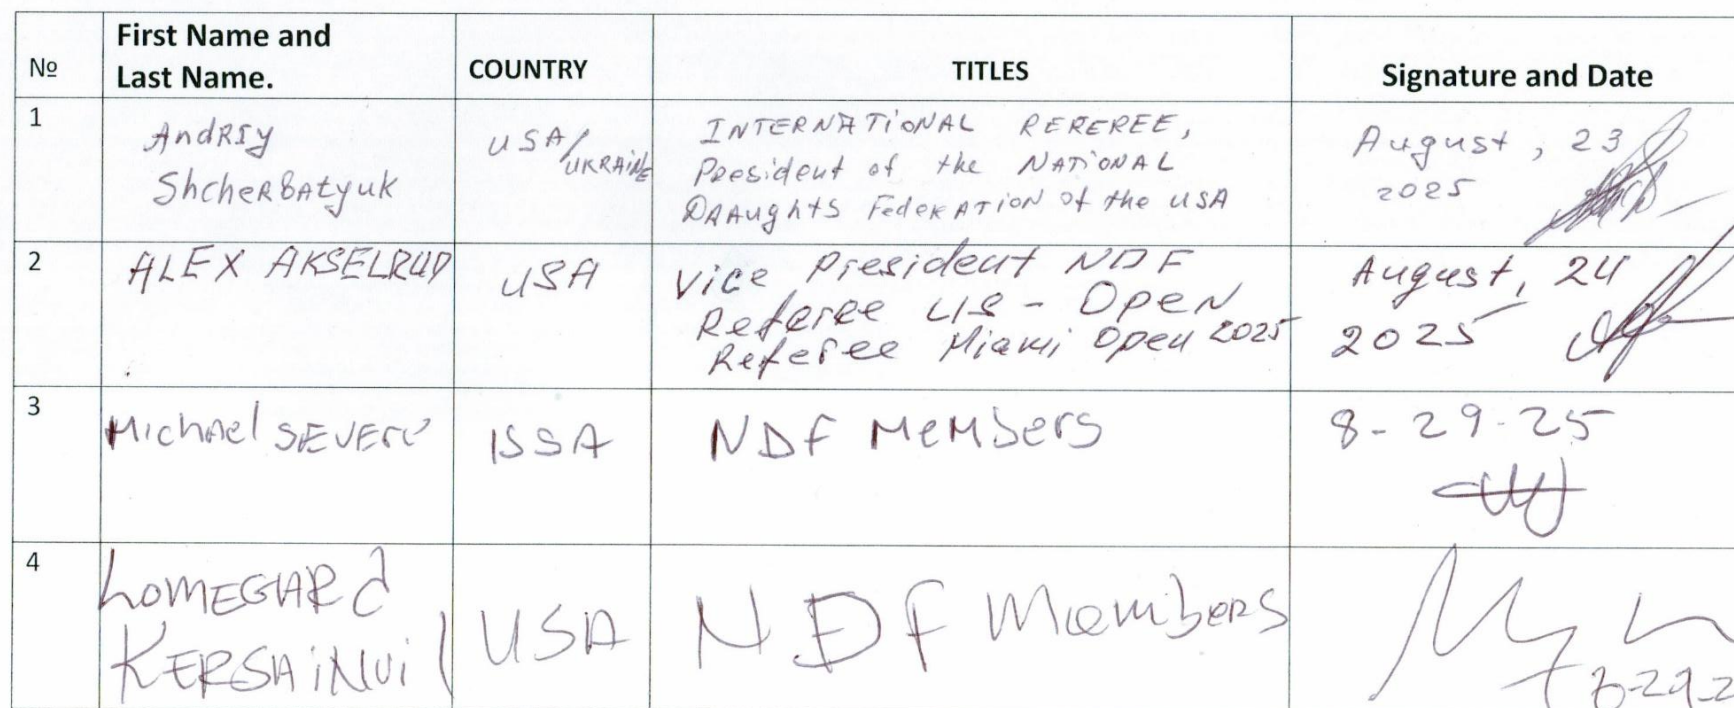 № First Name and Last Name. COUNTRY TITLES Signature and Date
1
Andriy
Shcherbatyuk
USA/
UKRAINE
INTERNATIONAL REREREE,
President of the NATIONAL
DRAughts FedeRATION of the USA
August, 23
2025
2
ALEX AKSELRUD
USA
Vice President NDF
Referee US - Open
Referee Miami Open 2025
August, 24
2025
3
Michael
ISSA
NDF Members
8-29-25
4
LOMEGARd
KERSAiNVil
USA
NDF Members